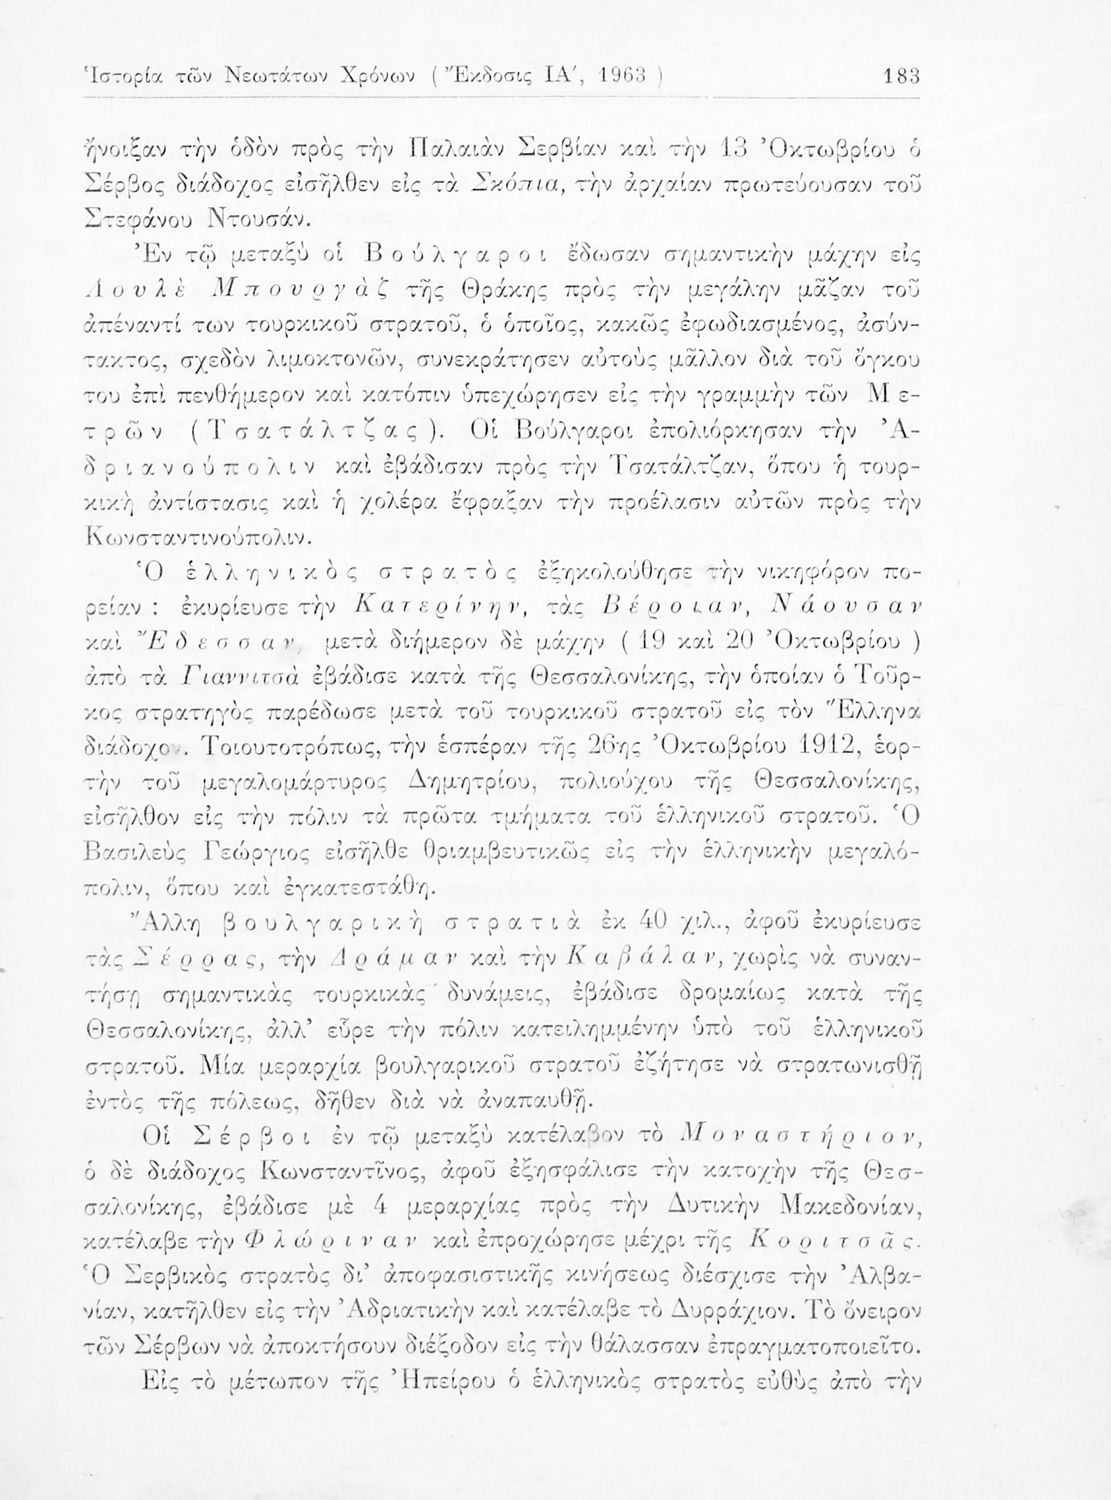 Ἱστορία τῶν Νεωτάτων Χρόνων ( Ἔκδοσις ΙΑ', 1963 ) 183
ἤνοιξαν τὴν ὁδὸν πρὸς τὴν Παλαιὰν Σερβίαν καὶ τὴν 13 Ὀκτωβρίου ὁ
Σέρβος διάδοχος εἰσῆλθεν εἰς τὰ Σκόπια, τὴν ἀρχαίαν πρωτεύουσαν τοῦ
Στεφάνου Ντουσάν.
Ἐν τῷ μεταξὺ οἱ Βούλγαροι ἔδωσαν σημαντικὴν μάχην εἰς
Λουλὲ Μπουργὰζ τῆς Θράκης πρὸς τὴν μεγάλην μᾶζαν τοῦ
ἀπέναντί των τουρκικοῦ στρατοῦ, ὁ ὁποῖος, κακῶς ἐφωδιασμένος, ἀσύν-
τακτος, σχεδὸν λιμοκτονῶν, συνεκράτησεν αὐτοὺς μᾶλλον διὰ τοῦ ὄγκου
του ἐπὶ πενθήμερον καὶ κατόπιν ὑπεχώρησεν εἰς τὴν γραμμὴν τῶν Με-
τρῶν (Τσατάλτζας). Οἱ Βούλγαροι ἐπολιόρκησαν τὴν Ἀ-
δριανούπολιν καὶ ἐβάδισαν πρὸς τὴν Τσατάλτζαν, ὅπου ἡ τουρ-
κικὴ ἀντίστασις καὶ ἡ χολέρα ἔφραξαν τὴν προέλασιν αὐτῶν πρὸς τὴν
Κωνσταντινούπολιν.
Ὁ ἑλληνικὸς στρατὸς ἐξηκολούθησε τὴν νικηφόρον πο-
ρείαν : ἐκυρίευσε τὴν Κατερίνην, τὰς Βέροιαν, Νάουσαν
καὶ Ἔδεσσαν, μετὰ διήμερον δὲ μάχην ( 19 καὶ 20 Ὀκτωβρίου )
ἀπὸ τὰ Γιαννιτσὰ ἐβάδισε κατὰ τῆς Θεσσαλονίκης, τὴν ὁποίαν ὁ Τοῦρ-
κος στρατηγὸς παρέδωσε μετὰ τοῦ τουρκικοῦ στρατοῦ εἰς τὸν Ἕλληνα
διάδοχον. Τοιουτοτρόπως, τὴν ἑσπέραν τῆς 26ης Ὀκτωβρίου 1912, ἑορ-
τὴν τοῦ μεγαλομάρτυρος Δημητρίου, πολιούχου τῆς Θεσσαλονίκης,
εἰσῆλθον εἰς τὴν πόλιν τὰ πρῶτα τμήματα τοῦ ἑλληνικοῦ στρατοῦ. Ὁ
Βασιλεὺς Γεώργιος εἰσῆλθε θριαμβευτικῶς εἰς τὴν ἑλληνικὴν μεγαλό-
πολιν, ὅπου καὶ ἐγκατεστάθη.
Ἄλλη βουλγαρικὴ στρατιὰ ἐκ 40 χιλ., ἀφοῦ ἐκυρίευσε
τὰς Σέρρας, τὴν Δράμαν καὶ τὴν Καβάλαν, χωρὶς νὰ συναν-
τήσῃ σημαντικὰς τουρκικὰς δυνάμεις, ἐβάδισε δρομαίως κατὰ τῆς
Θεσσαλονίκης, ἀλλ' εὗρε τὴν πόλιν κατειλημμένην ὑπὸ τοῦ ἑλληνικοῦ
στρατοῦ. Μία μεραρχία βουλγαρικοῦ στρατοῦ ἐζήτησε νὰ στρατωνισθῇ
ἐντὸς τῆς πόλεως, δῆθεν διὰ νὰ ἀναπαυθῇ.
Οἱ Σέρβοι ἐν τῷ μεταξὺ κατέλαβον τὸ Μοναστήριον,
ὁ δὲ διάδοχος Κωνσταντῖνος, ἀφοῦ ἐξησφάλισε τὴν κατοχὴν τῆς Θεσ-
σαλονίκης, ἐβάδισε μὲ 4 μεραρχίας πρὸς τὴν Δυτικὴν Μακεδονίαν,
κατέλαβε τὴν Φλώριναν καὶ ἐπροχώρησε μέχρι τῆς Κοριτσᾶς.
Ὁ Σερβικὸς στρατὸς δι' ἀποφασιστικῆς κινήσεως διέσχισε τὴν Ἀλβα-
νίαν, κατῆλθεν εἰς τὴν Ἀδριατικὴν καὶ κατέλαβε τὸ Δυρράχιον. Τὸ ὄνειρον
τῶν Σέρβων νὰ ἀποκτήσουν διέξοδον εἰς τὴν θάλασσαν ἐπραγματοποιεῖτο.
Εἰς τὸ μέτωπον τῆς Ἠπείρου ὁ ἑλληνικὸς στρατὸς εὐθὺς ἀπὸ τὴν